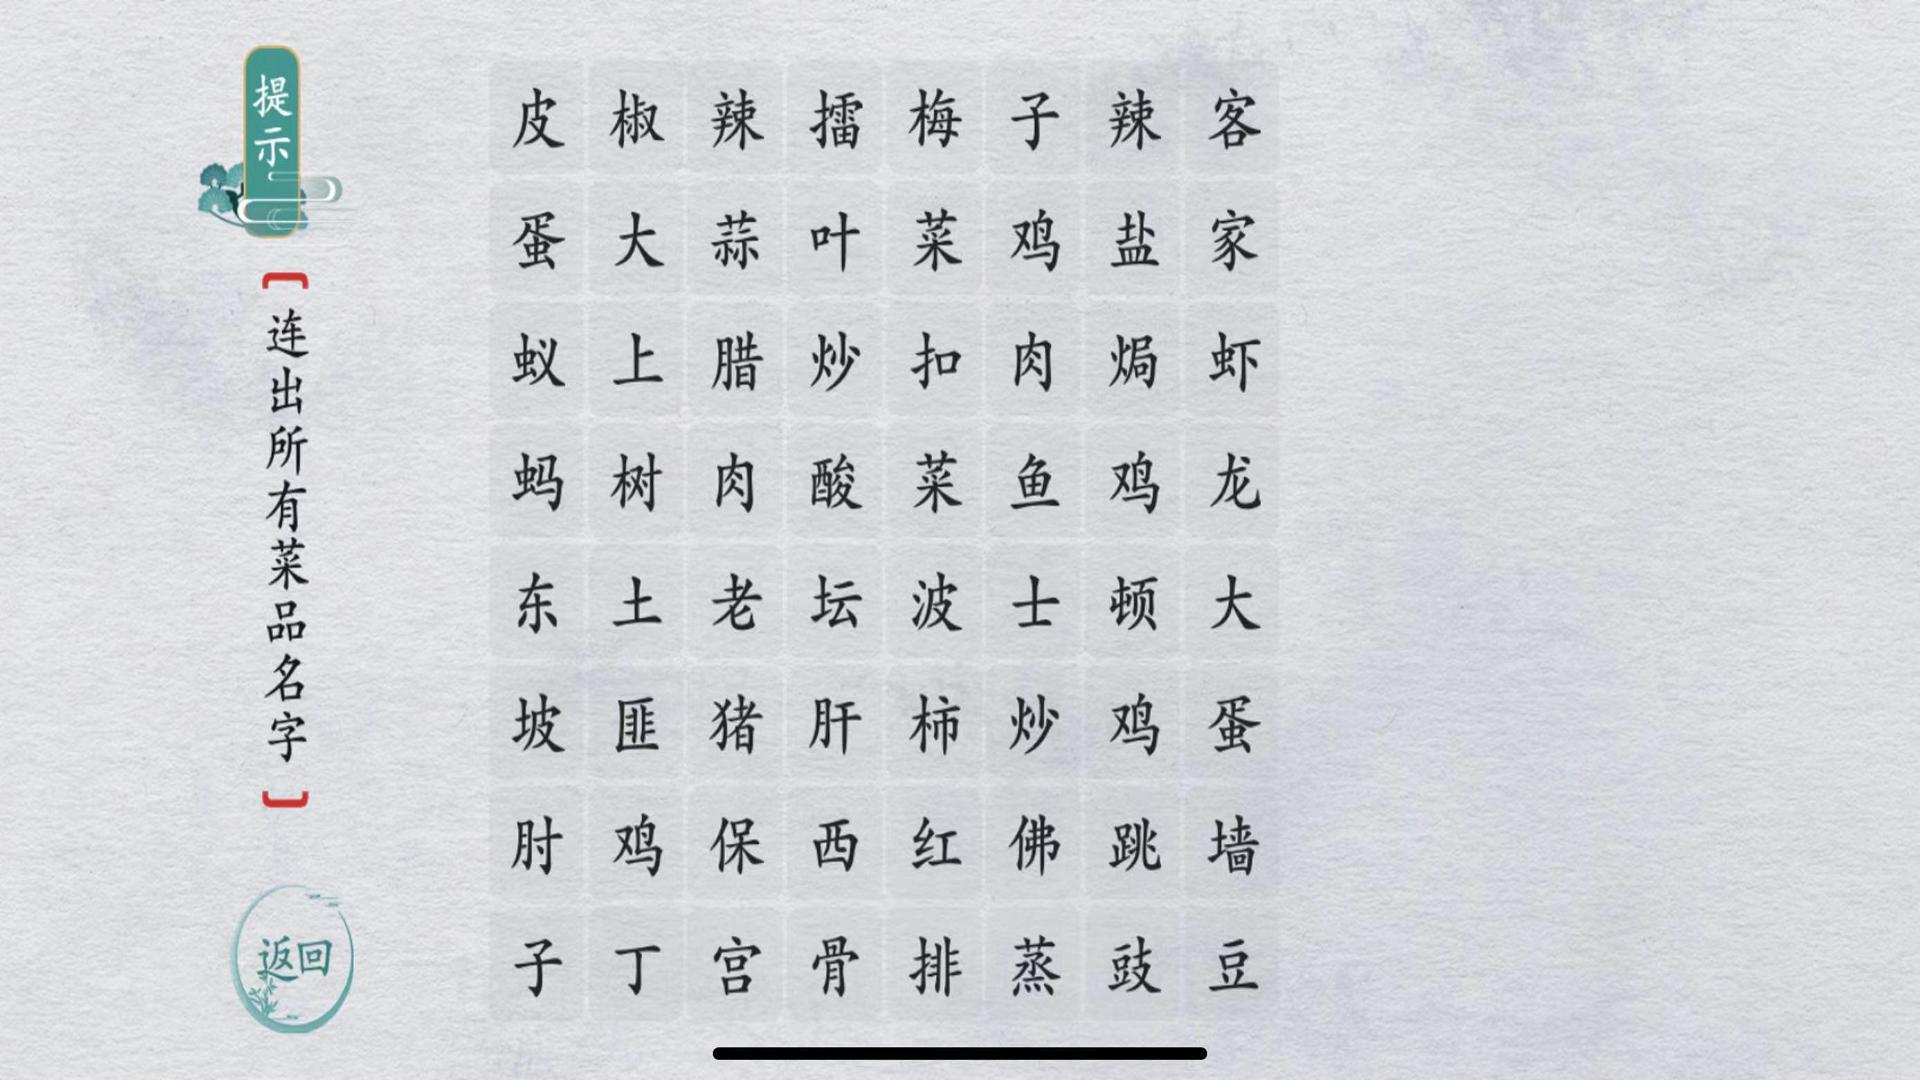 提示
连出所有菜品名字
返回
皮椒辣擂梅子辣客
蛋大蒜叶菜鸡盐家
蚁上腊炒扣肉焗虾
蚂树肉酸菜鱼鸡龙
东土老坛波士顿大
坡匪猪肝柿炒鸡蛋
肘鸡保西红佛跳墙
子丁宫骨排蒸豉豆